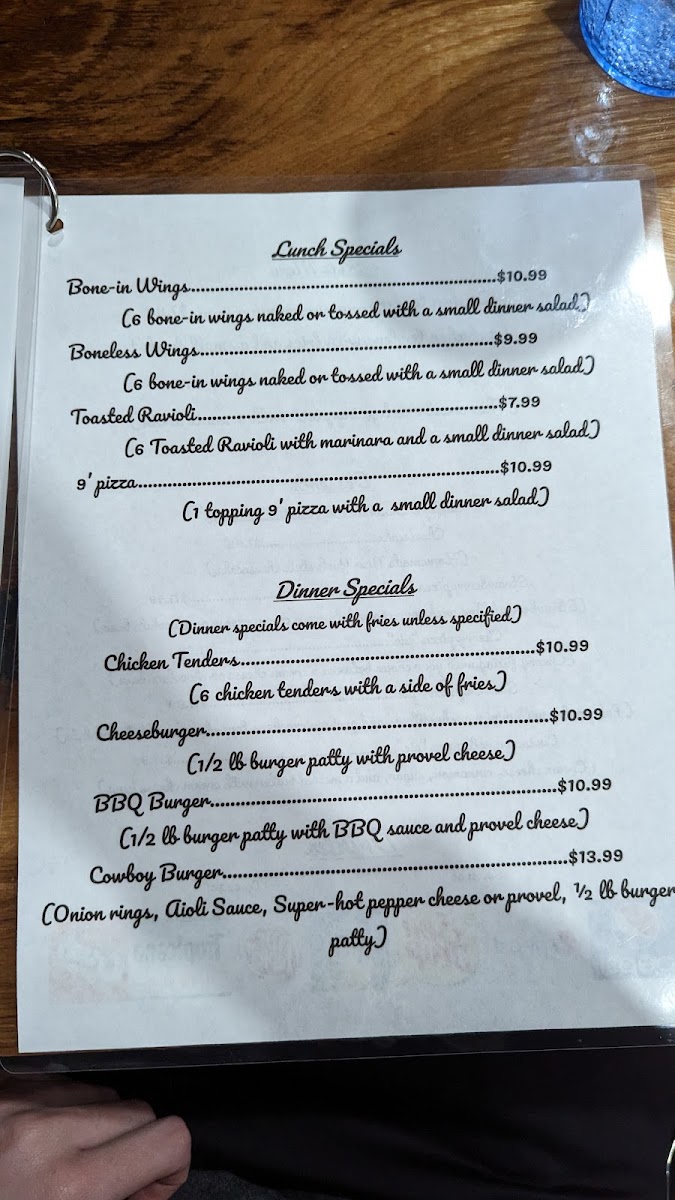 Lunch Specials
Bone-in Wings.....$10.99
(6 bone-in wings naked or tossed with a small dinner salad)
Boneless Wings.....$9.99
(6 bone-in wings naked or tossed with a small dinner salad)
Toasted Ravioli.....$7.99
(6 Toasted Ravioli with marinara and a small dinner salad)
9' pizza.....$10.99
(1 topping 9' pizza with a small dinner salad)
Dinner Specials
(Dinner specials come with fries unless specified)
Chicken Tenders.....$10.99
(6 chicken tenders with a side of fries)
Cheeseburger.....$10.99
(1/2 lb burger patty with provel cheese)
BBQ Burger.....$10.99
(1/2 lb burger patty with BBQ sauce and provel cheese)
Cowboy Burger.....$13.99
(Onion rings, Aioli Sauce, Super-hot pepper cheese or provel, ½ lb burger
patty)